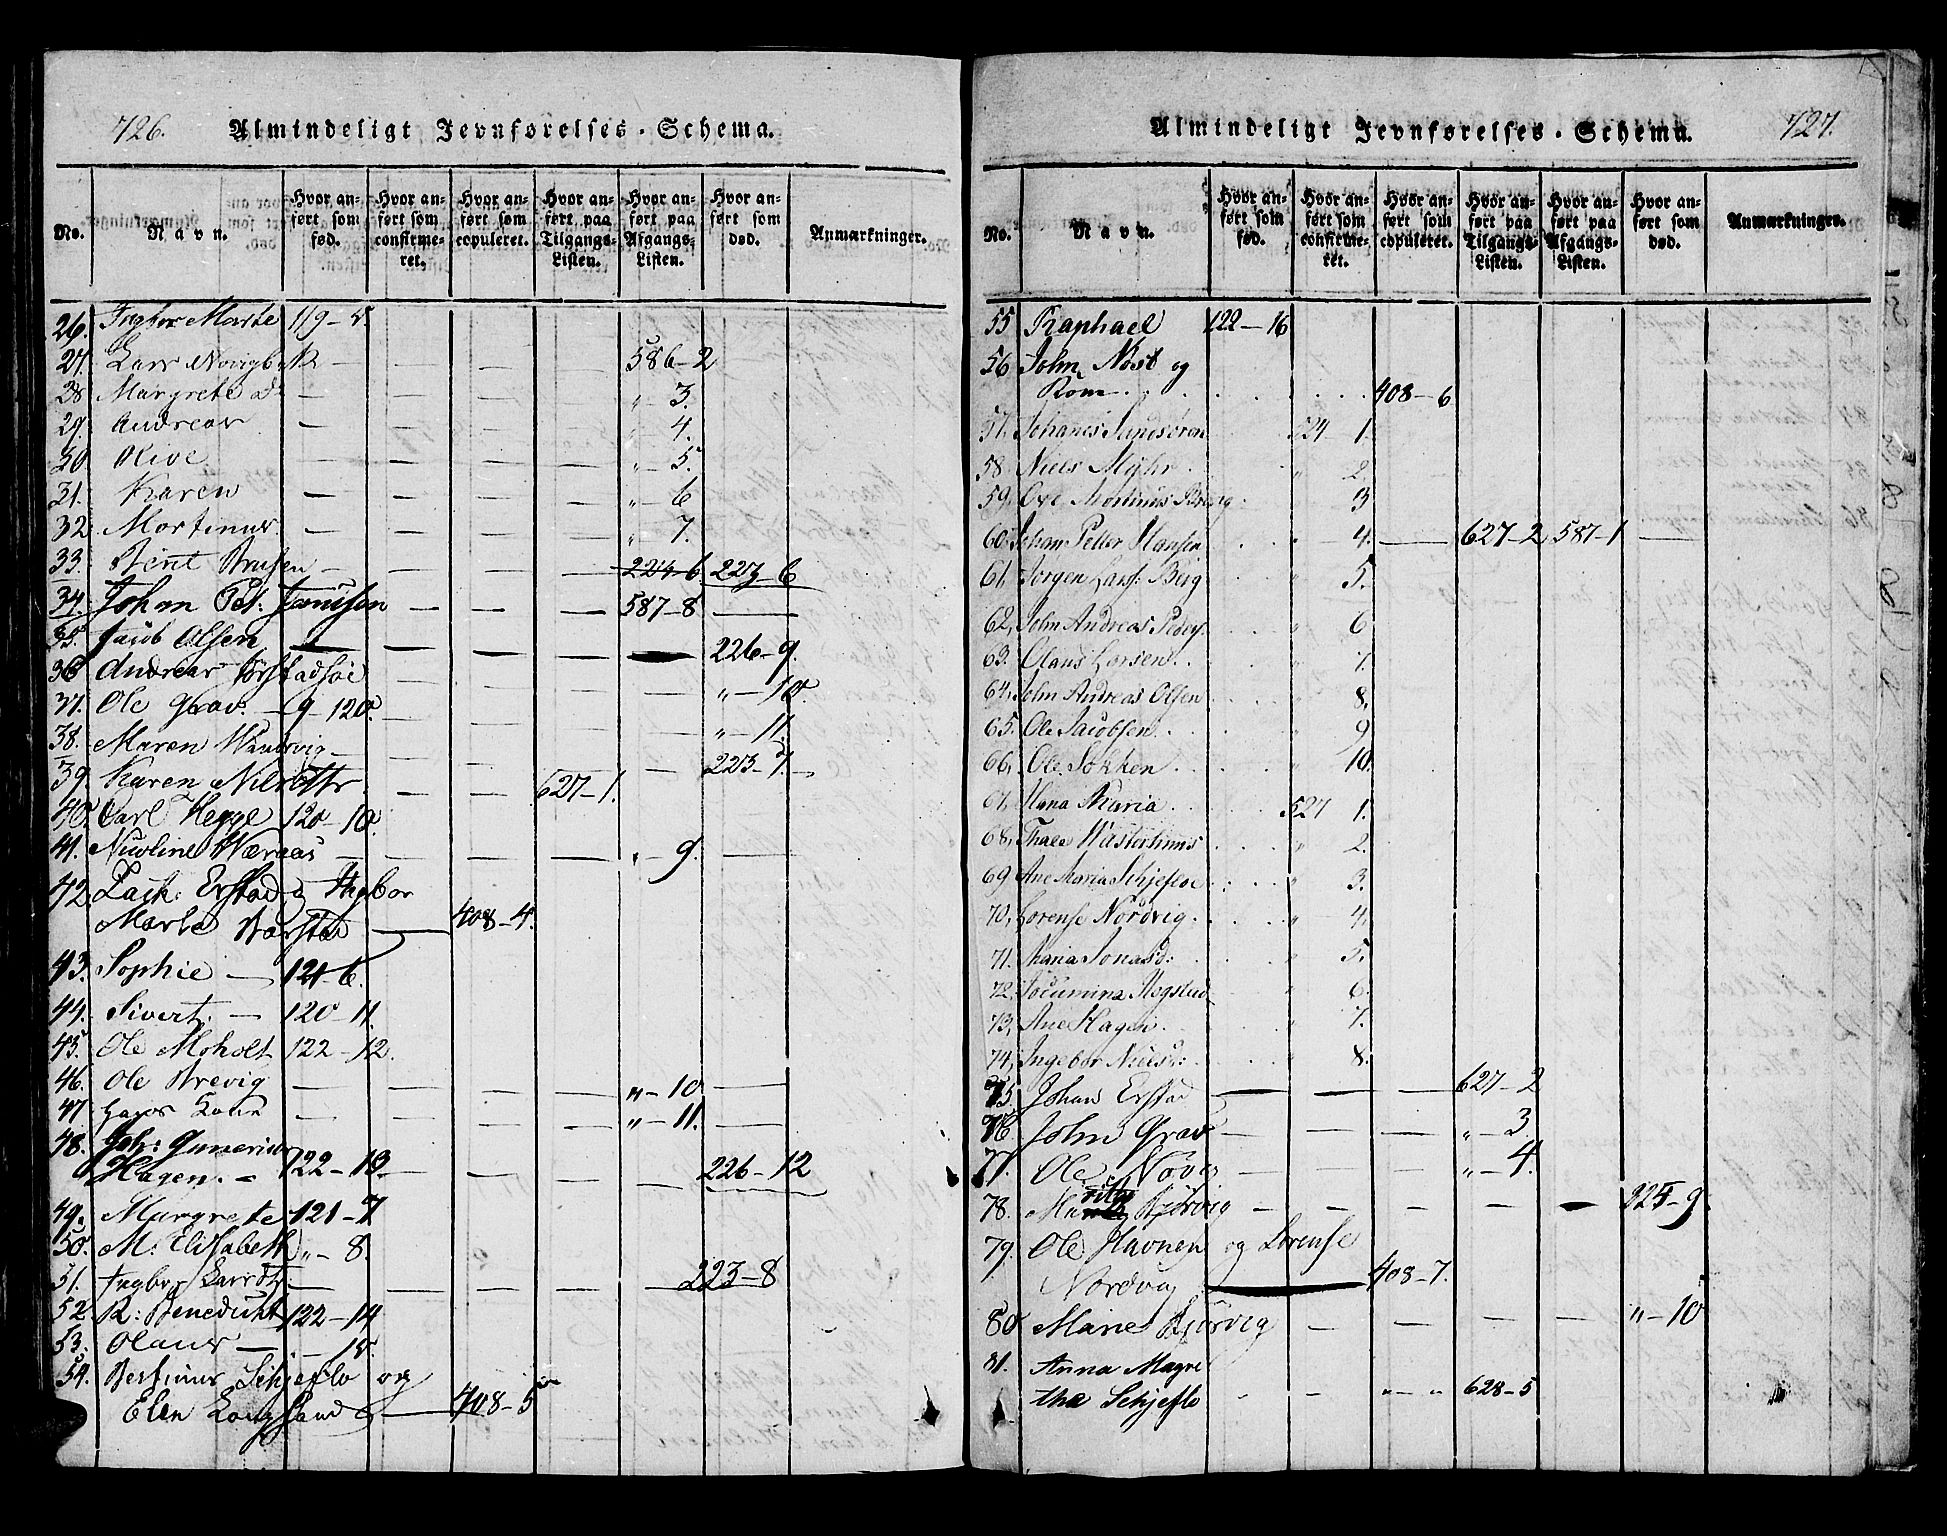 726. Almindeligt Jevnførelses-Schema.
No. Navn. Hvor anført som fød. Hvor anført som confirmeret. Hvor anført som copuleret. Hvor anført paa Tilgangs-Listen. Hvor anført paa Afgangs-Listen. Hvor anført som død. Anmærkninger.
26. Ingbor Marte 119-5.
27. Lars 586-2
28 Margrete — — — — " — 3.
29. Andreas — — — — " — 4.
30 Olive — — — — " — 5.
31. Karen — — — — " — 6
32. Martinus — — — — " — 7.
33. Bent — — — — 223-6 223-6
34. Johan Pet: — — — 587-8 —
35. Jacob Olsen — — — — — 226-9.
36 Andreas — — — — " — 10.
37. Ole Grav. — 9-120. — — — — " — 11.
38. Maren — — — — — 223-7.
39. Karen — — — 627-1.
40. Carl Hegge 120-10.
41. Nicoline Wæraas — — — — " — 9. —
42. Zach: Erstad og Ingbor
Marta — 408-4.
43. Sophie — 121-6.
44. Sivert. — 120-11.
45. Ole Moholt 122-12.
46. Ole Brevig — — — — " — 10 —
47 — — — — " — 11. —
48. Joh: Gunerius
Hagen. — 122-13 — — — — 226-12
49. Margrete 121-7
50. M: Elisabeth " — 8.
51. Ingbor — — — — — 223-8
52 R: Benedicte 122-14
53. Olaus — . — 15.
54. Bertinus Schjeflo og
Elen — 408-5
727. Almindeligt Jevnførelses-Schema.
No. Navn. Hvor anført som fød. Hvor anført som confirmeret. Hvor anført som copuleret. Hvor anført paa Tilgangs-Listen. Hvor anført paa Afgangs-Listen. Hvor anført som død. Anmærkninger.
55 Raphael 122-16
56 John Nost og
Kone . . . 408-6
57. Johanes Sandsøren 524 1.
58. Niels Myhr. " 2.
59. Ole Mortinus " 3
60. Johan Petter Hansen " 4. — 627-2 587-1 —
61. Jørgen Lars: Berg " 5.
62, John Andreas Peders. " 6
63. Olaus Larsen. " 7.
64, John Andreas Olsen " 8.
65. Ole Jacobsen. " 9
66, Ole Sokken " 10.
67. Hana Maria. 527 1.
68, Thale " 2.
69 Ane Maria Schjefloe " 3.
70, Lorense Nordvig. " 4.
71. Maria Jonasd: " 5.
72, " 6.
73, Ane Hagen. " 7.
74, Ingebor Nielsd: " 8.
75. Johan Erstad — — — 627-2
76. John Grav — — — " — 3
77. Ole — — — " — 4.
78. — — — — — 225-9.
79. Ole Havnen og Lorense
Nordvig — 408-7.
80 Marie Bjørvig — — — — " — 10
81. Anna Magre
tha Schjeflo - - " - " 628-5